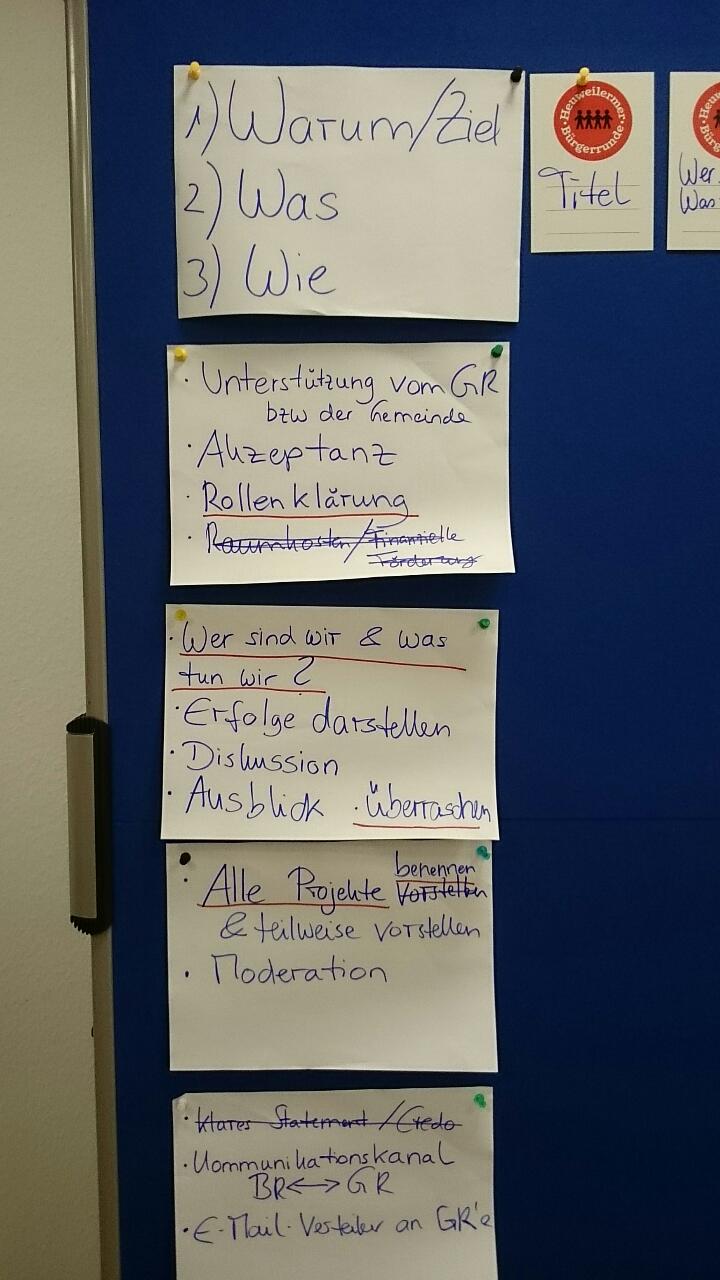 1) Warum/Ziel
2) Was
3) Wie
Heuweilermer
Bürgerrunde
Titel
Wer
Was
· Unterstützung vom GR
bzw der Gemeinde
· Akzeptanz
· Rollenklärung
· Raumkosten/Finanzielle
Förderung
· Wer sind wir & was
tun wir?
· Erfolge darstellen
· Diskussion
· Ausblick · Überraschen
benennen
· Alle Projekte vorstellen
& teilweise vorstellen
· Moderation
· klares Statement/Credo
· Kommunikationskanal
BR↔GR
· E-Mail-Verteiler an GR's